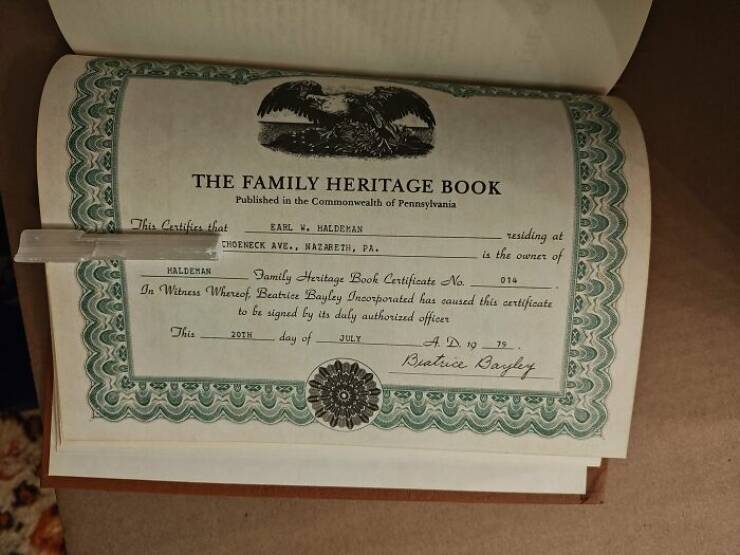 THE FAMILY HERITAGE BOOK
Published in the Commonwealth of Pennsylvania
This Certifies that EARL W. HALDEMAN residing at
CHOENECK AVE., NAZARETH, PA. is the owner of
HALDEMAN Family Heritage Book Certificate No. 014.
In Witness Whereof, Beatrice Bayley Incorporated has caused this certificate
to be signed by its duly authorized officer
This 20TH day of JULY A. D. 19 79.
Beatrice Bayley